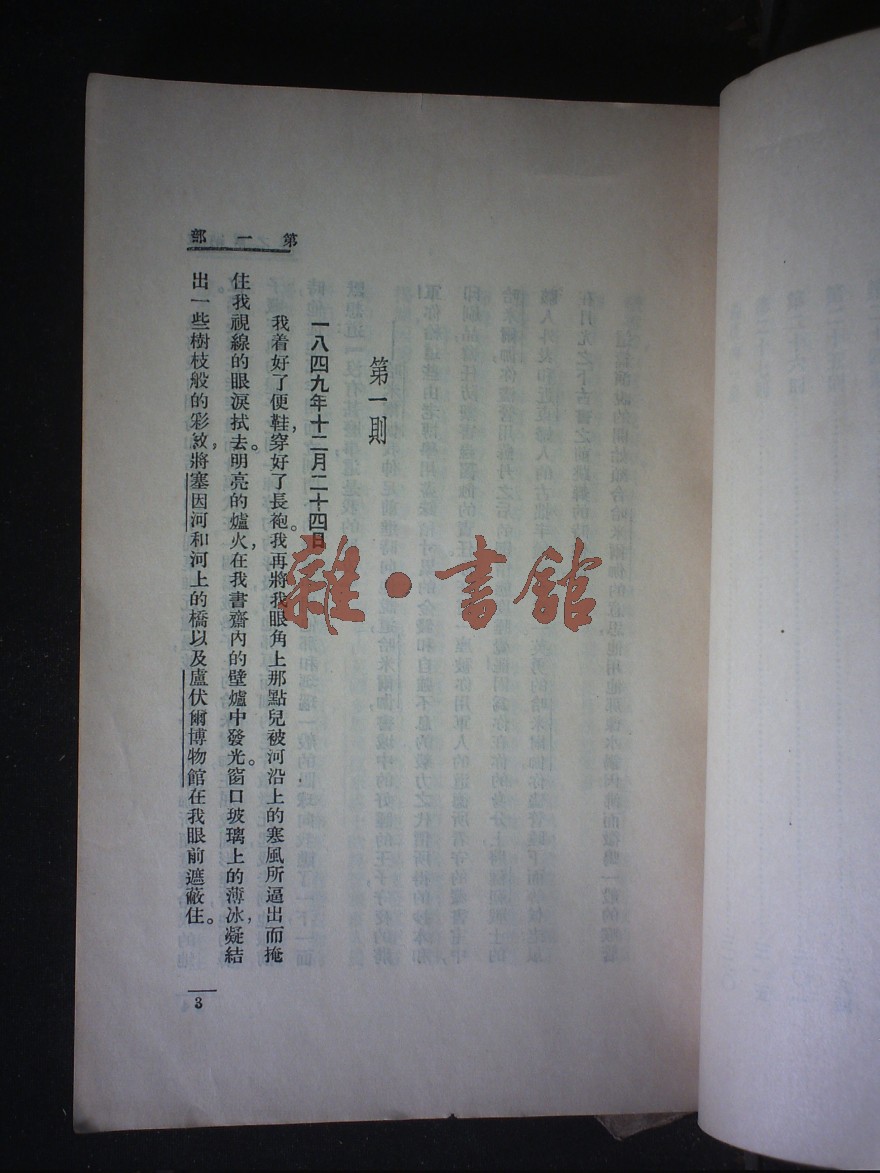 第一部
第一則
一八四九年十二月二十四日
我着好了便鞋，穿好了長袍。我再將我眼角上那點兒被河沿上的寒風所逼出而掩
住我視線的眼淚拭去。明亮的爐火，在我書齋內的壁爐中發光。窗口玻璃上的薄冰，凝結
出一些樹枝般的彩紋，將塞因河和河上的橋以及盧伏爾博物館在我眼前遮蔽住。
3
雜·書館